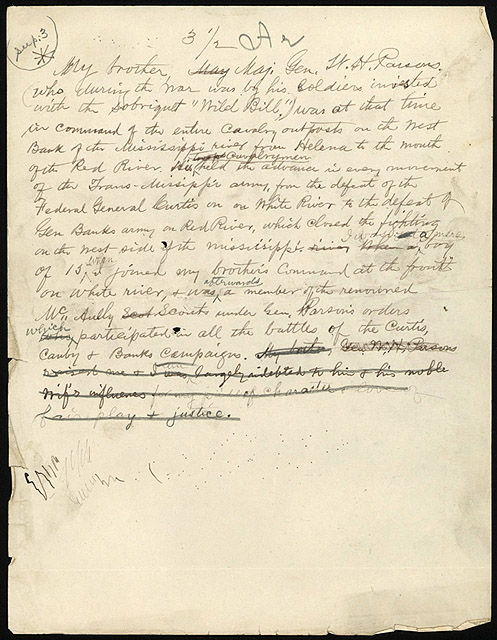 sup. 3
3 1/2 A r
My brother, May Maj. Gen. W. H. Parsons,
(who during the war was by his soldiers invested
with the sobriquet "Wild Bill,") was at that time
in command of the entire Cavalry outposts on the West
Bank of the Mississippi river from Helena to the mouth
cavalrymen
of the Red River. held the advance in every movement
of the Trans-Mississippi army, from the defeat of the
Federal General Curtis on on White River to the defeat of
Gen Banks army on Red River, which closed the fighting
on the west side of the Mississippi. a mere
river when a boy
of 15, when I joined my brother's Command at the front
afterwards
on White river, & was a member of the renowned
Mc.Anlly Scot Scouts under Gen. Parson's orders
which
participated in all the battles of the Curtis,
Canby & Banks Campaigns. My brother Gen. W. H. Parsons
raised me & I was largely indebted to his & his noble
wife's influences of character & love of
fair play & justice.